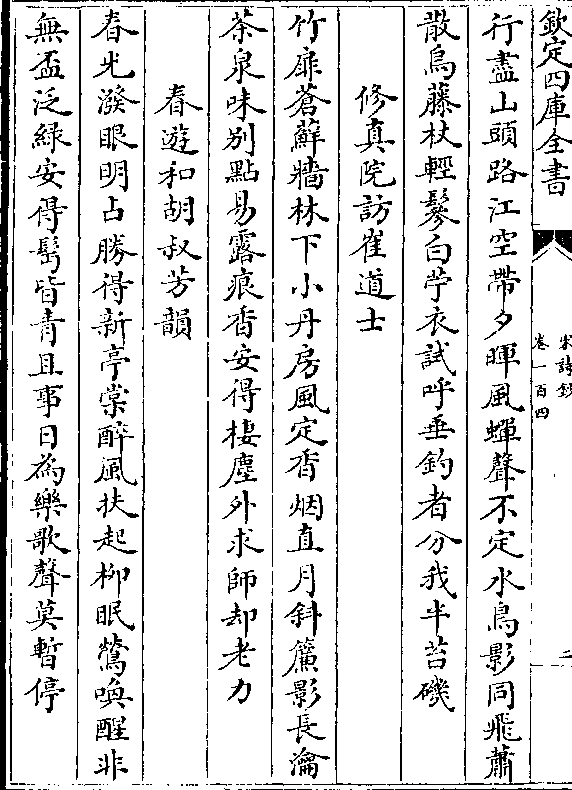 欽定四庫全書
宋詩鈔
卷一百四
二
行盡山頭路江空帶夕暉風蟬聲不定水鳥影同飛蕭
散烏藤杖輕鬆白苧衣試呼垂釣者分我半苔磯
修真院訪崔道士
竹扉蒼蘚牆林下小丹房風定香烟直月斜簾影長瀹
茶泉味别點易露痕香安得棲塵外求師却老力
春遊和胡叔芳韻
春光潑眼明占勝得新亭棠醉風扶起柳眠鶯喚醒非
無盃泛綠安得鬂皆青且事日為樂歌聲莫暫停